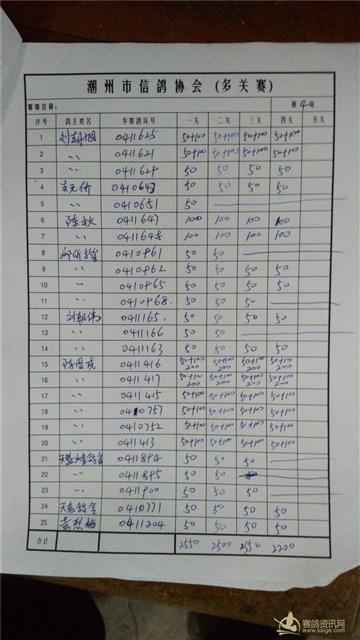 潮州市信鸽协会(多关赛)
赛事名称: 第4页
序号 鸽主姓名 参赛鸽环号 一关 二关 三关 四关 五关
1 0411625 50+100 50+100 50+100 50+100
2 〃 0411621 50+100 50+100 50+100 50+100
3 〃 0411629 50 50 50 50
4 吴元侨 0410643 50 50 50 50
5 〃 0410651 50
6 陈秋 0411647 100 100 100 100
7 〃 0411648 100 100 100 100
8 0410961 50 50
9 〃 0410962 50 50 50 50
10 〃 0410965 50 50 50 50
11 〃 0410968 50 50 50
12 刘朝伟 0411165 50 50 50 50
13 〃 0411166 50 50
14 〃 0411163 50 50 50 50
15 0411416 50+100 200 50+100 200 50+100 200 50+100 200
16 〃 0411417 50+100 200 50+100 200 50+100 200 50+100 200
17 〃 0411415 50+100 50+100 50+100 50+100
18 〃 0410757 50+100 50+100 50+100 50+100
19 〃 0410752 50+100 50+100 50+100 50+100
20 〃 0411413 50+100 50+100 50+100 50+100
21 0411894 50 50 50
22 〃 0411895 50 50
23 〃 0411900 50 50
24 0410771 50 50 50 50
25 0411204 50 50 50 50
合计 2550 2500 2350 2200
赛鸽资讯网
www.saige.com